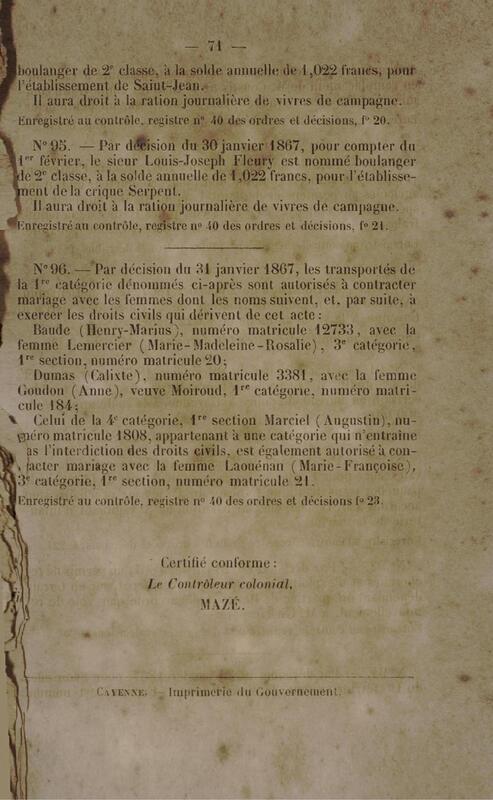 — 71 —
boulanger de 2e classe, à la solde annuelle de 1,022 francs, pour
l'établissement de Saint-Jean.
Il aura droit à la ration journalière de vivres de campagne.
Enregistré au contrôle, registre n° 40 des ordres et décisions, f° 20.
N° 95. — Par décision du 30 janvier 1867, pour compter du
1er février, le sieur Louis-Joseph Fleury est nommé boulanger
de 2e classe, à la solde annuelle de 1,022 francs, pour l'établisse-
ment de la crique Serpent.
Il aura droit à la ration journalière de vivres de campagne.
Enregistré au contrôle, registre n° 40 des ordres et décisions, f° 21.
N° 96. — Par décision du 31 janvier 1867, les transportés de
la 1re catégorie dénommés ci-après sont autorisés à contracter
mariage avec les femmes dont les noms suivent, et, par suite, à
exercer les droits civils qui dérivent de cet acte :
Baude (Henry-Marius), numéro matricule 12733, avec la
femme Lemercier (Marie-Madeleine-Rosalie), 3e catégorie,
1re section, numéro matricule 20;
Dumas (Calixte), numéro matricule 3381, avec la femme
Goudon (Anne), veuve Moiroud, 1re catégorie, numéro matri-
cule 184;
Celui de la 4e catégorie, 1re section Marciel (Augustin), nu-
méro matricule 1808, appartenant à une catégorie qui n'entraîne
as l'interdiction des droits civils, est également autorisé à con-
racter mariage avec la femme Laouénan (Marie-Françoise),
3e catégorie, 1re section, numéro matricule 21.
Enregistré au contrôle, registre n° 40 des ordres et décisions f° 23.
Certifié conforme :
Le Contrôleur colonial,
MAZÉ.
CAYENNE. — Imprimerie du Gouvernement.